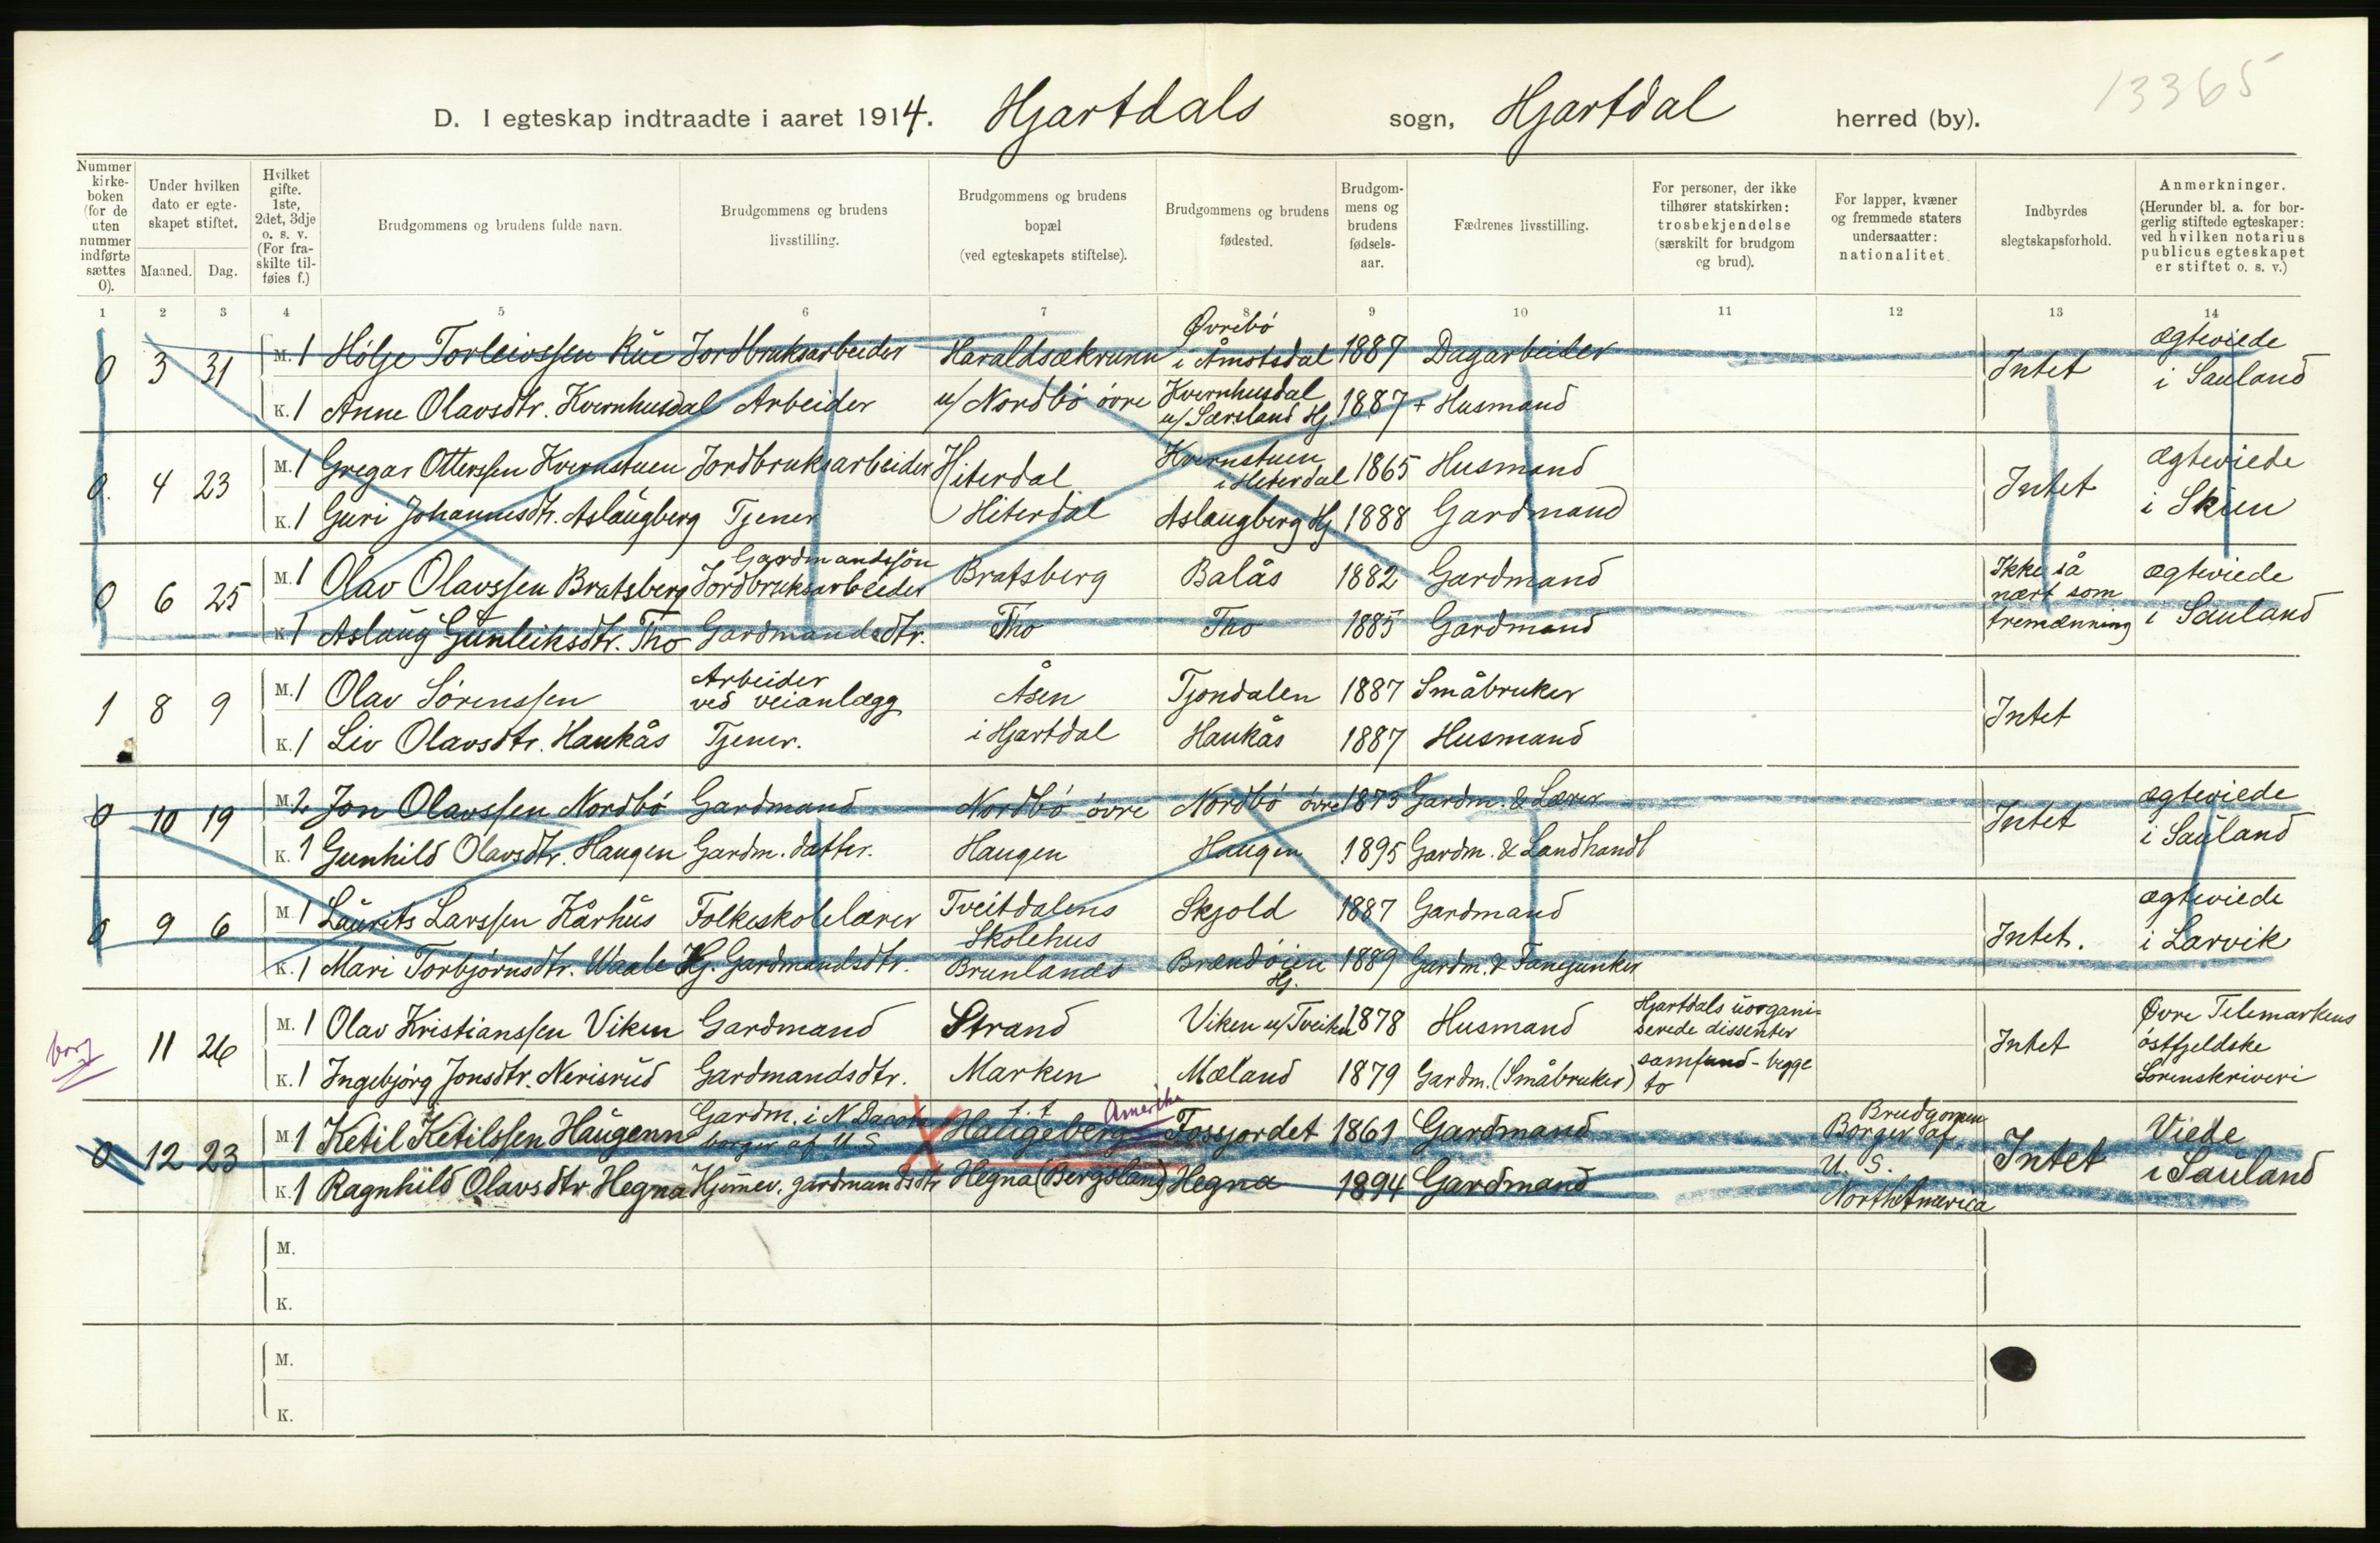 13365
D. I egteskap indtraadte i aaret 1914. Hjartdals sogn, Hjartdal herred (by).
Nummer kirke-boken (for de uten nummer indførte sættes 0).
Under hvilken dato er egte-skapet stiftet.
Maaned. Dag.
Hvilket gifte. 1ste, 2det, 3dje o. s. v. (For fra-skilte til-føies f.)
Brudgommens og brudens fulde navn.
Brudgommens og brudens livsstilling.
Brudgommens og brudens bopæl (ved egteskapets stiftelse).
Brudgommens og brudens fødested.
Brudgom-mens og brudens fødsels-aar.
Fædrenes livsstilling.
For personer, der ikke tilhører statskirken: trosbekjendelse (særskilt for brudgom og brud).
For lapper, kvæner og fremmede staters undersaatter: nationalitet.
Indbyrdes slegtskapsforhold.
Anmerkninger. (Herunder bl. a. for bor-gerlig stiftede egteskaper: ved hvilken notarius publicus egteskapet er stiftet o. s. v.)
1 2 3 4 5 6 7 8 9 10 11 12 13 14
0 3 31 M. 1 Hólje Torleivssen Rue Jordbruksarbeider Haraldsækrunn Øvrebó i Åmotsdal 1887 Dagarbeider Intet ægteviede i Sauland
K. 1 Anne Olavsdtr. Kvernhusdal Arbeider u/ Nordbó óvre Kvernhusdal u/ Særsland Hj. 1887 + Husmand
0. 4 23 M. 1 Gregar Otterssen Kvernstuen Jordbruksarbeider Hiterdal Kvernstuen i Hiterdal 1865 Husmand Intet ægteviede i Skien
K. 1 Guri Johannesdtr. Aslaugberg Tjener Hiterdal Aslaugberg Hj 1888 Gardmand
0 6 25 M. 1 Olav Olavssen Bratsberg Gardmandssön Jordbruksarbeider Bratsberg Balås 1882 Gardmand Ikke så nært som tremænning ægteviede i Sauland
K. 1 Aslaug Gunleiksdtr. Tho Gardmandsdtr. Tho Tho 1885 Gardmand
1 8 9 M. 1 Olav Sórenssen Arbeider ved veianlægg Åsen Tjondalen 1887 Småbruker Intet
K. 1 Liv Olavsdtr. Haukås Tjener. i Hjartdal Haukås 1887 Husmand
0 10 19 M. 2 Jon Olavssen Nordbó Gardmand Nordbó óvre Nordbó óvre 1873 Gardm. & Lærer Intet ægteviede i Sauland
K. 1 Gunhild Olavsdtr. Haugen Gardm. datter. Haugen Haugen 1895 Gardm. & Landhandl
0 9 6 M. 1 Laurits Larssen Kårhus Folkeskolelærer Tveitdalens Skolehus Skjold 1887 Gardmand Intet. ægteviede i Larvik
K. 1 Mari Torbjórnsdtr. Waale Hj. Gardmandsdtr. Brunlanes Brændóien Hj. 1889 Gardm. &
borg 11 26 M. 1 Olav Kristianssen Viken Gardmand Strand Viken u/Tveiten 1878 Husmand Hjartdals uorgani-serede dissenter samfund - begge to Intet Øvre Telemarkens óstfjeldske Sorenskriveri
K. 1 Ingebjórg Jonsdtr. Nerisrud Gardmandsdtr. Marken Mæland 1879 Gardm. (Småbruker)
0 12 23 M. 1 Ketil Ketilssen Haugenn Gardm. i N. Dacota borger af U S t. t Haugeberg Amerika Fossjordet 1861 Gardmand Brudgomen Borger af U. S. North America Intet Viede i Sauland
K. 1 Ragnhild Olavsdtr Hegna Hjemmev. gardmandsdtr Hegna (Bergsland) Hegna 1894 Gardmand
M.
K.
M.
K.